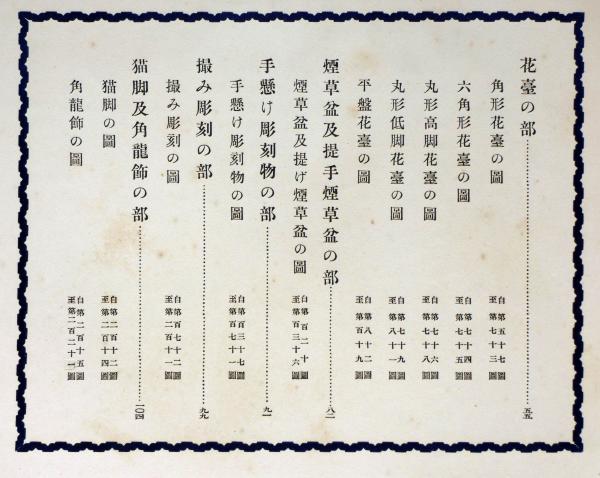 花臺の部……五五
角形花臺の圖 自第五十七圖 至第七十三圖
六角形花臺の圖 自第七十四圖 至第七十五圖
丸形高脚花臺の圖 自第七十六圖 至第七十八圖
丸形低脚花臺の圖 自第七十九圖 至第八十一圖
平盤花臺の圖 自第八十二圖 至第百十九圖
煙草盆及提手煙草盆の部……八二
煙草盆及提げ煙草盆の圖 自第百二十圖 至第百三十六圖
手懸け彫刻物の部……九一
手懸け彫刻物の圖 自第百三十七圖 至第百七十一圖
撮み彫刻の部……九九
撮み彫刻の圖 自第百七十二圖 至第二百十一圖
猫脚及角龍飾の部……一〇四
猫脚の圖 自第二百十二圖 至第二百十四圖
角龍飾の圖 自第二百十五圖 至第二百二十二圖